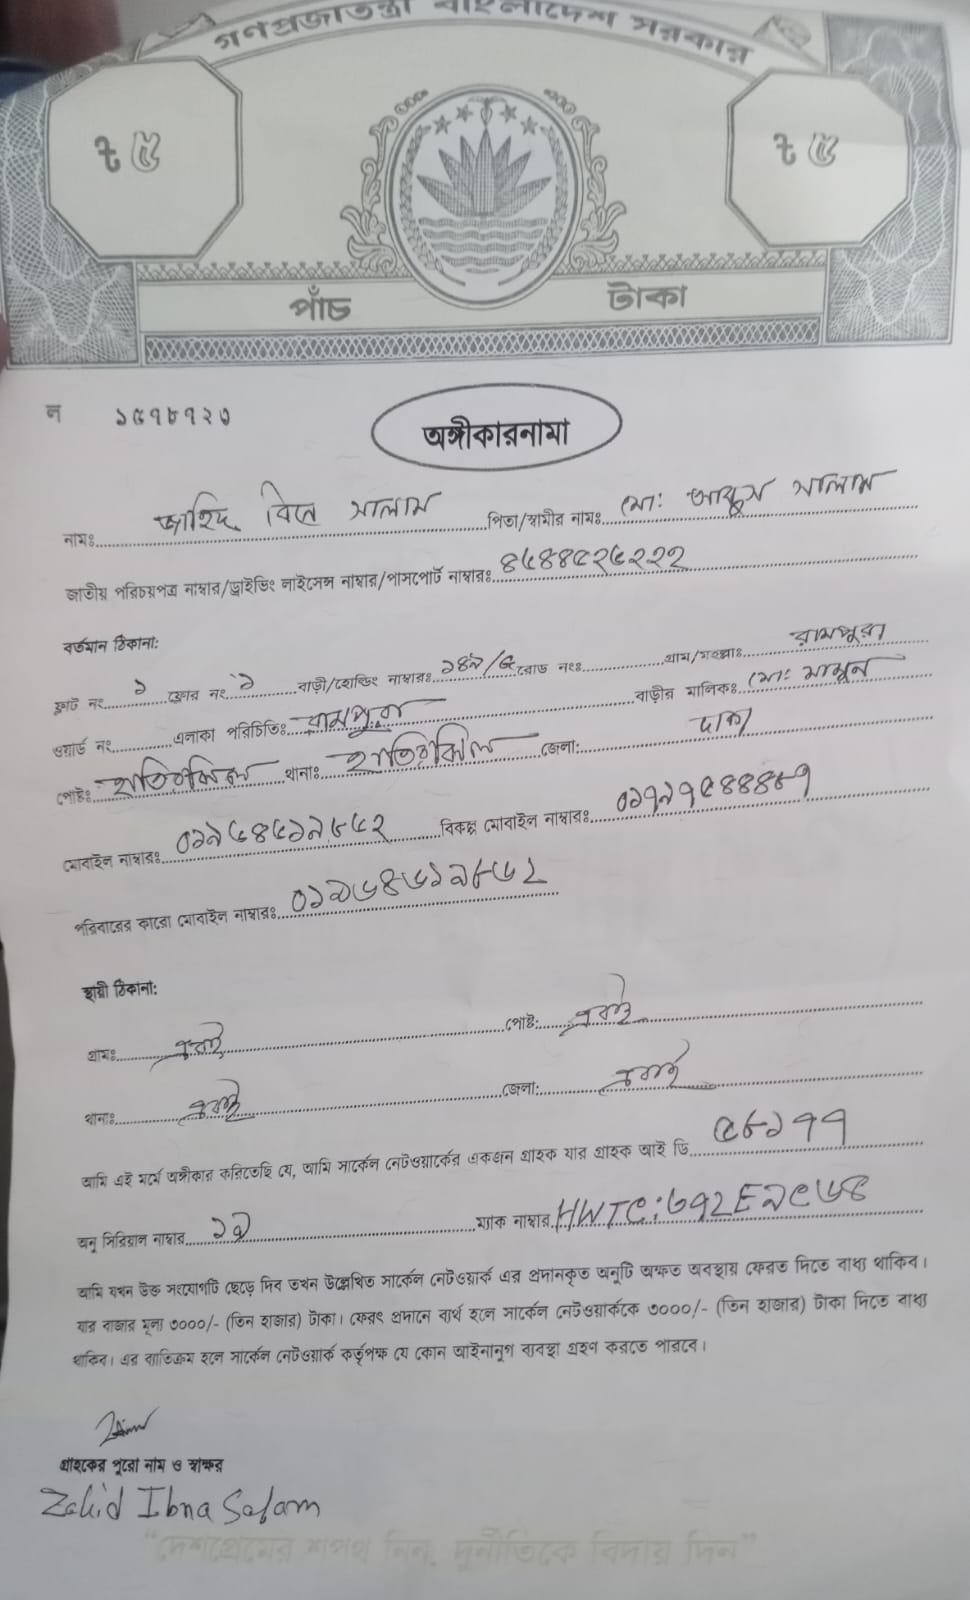 গণপ্রজাতন্ত্রী বাংলাদেশ সরকার
৳ ৫ ৳ ৫
পাঁচ টাকা
ল ১৫৭৮৭২৩
অঙ্গীকারনামা
নামঃ জাহিদ বিনে সালাম পিতা/স্বামীর নামঃ মো: আব্দুস সালাম
জাতীয় পরিচয়পত্র নাম্বার/ড্রাইভিং লাইসেন্স নাম্বার/পাসপোর্ট নাম্বারঃ
বর্তমান ঠিকানা:
ফ্লাট নং ১ ফ্লোর নং ১ বাড়ী/হোল্ডিং নাম্বারঃ রোড নংঃ গ্রাম/মহল্লাঃ রামপুরা
ওয়ার্ড নং এলাকা পরিচিতিঃ রামপুরা বাড়ীর মালিকঃ মো: মামুন
পোষ্টঃ হাতিরঝিল থানাঃ হাতিরঝিল জেলা: ঢাকা
মোবাইল নাম্বারঃ বিকল্প মোবাইল নাম্বারঃ
পরিবারের কারো মোবাইল নাম্বারঃ
স্থায়ী ঠিকানা:
গ্রামঃ একই পোষ্ট: একই
থানাঃ একই জেলা: একই
আমি এই মর্মে অঙ্গীকার করিতেছি যে, আমি সার্কেল নেটওয়ার্কের একজন গ্রাহক যার গ্রাহক আই ডি ৫৮১৭৭
অনু সিরিয়াল নাম্বার ১৯ ম্যাক নাম্বার HWTC:
আমি যখন উক্ত সংযোগটি ছেড়ে দিব তখন উল্লেখিত সার্কেল নেটওয়ার্ক এর প্রদানকৃত অনুটি অক্ষত অবস্থায় ফেরত দিতে বাধ্য থাকিব।
যার বাজার মূল্য ৩০০০/- (তিন হাজার) টাকা। ফেরৎ প্রদানে ব্যর্থ হলে সার্কেল নেটওয়ার্ককে ৩০০০/- (তিন হাজার) টাকা দিতে বাধ্য
থাকিব। এর ব্যতিক্রম হলে সার্কেল নেটওয়ার্ক কর্তৃপক্ষ যে কোন আইনানুগ ব্যবস্থা গ্রহণ করতে পারবে।
গ্রাহকের পুরো নাম ও স্বাক্ষর
Zahid Ibna Salam
"দেশপ্রেমের শপথ নিন, দুর্নীতিকে বিদায় দিন"